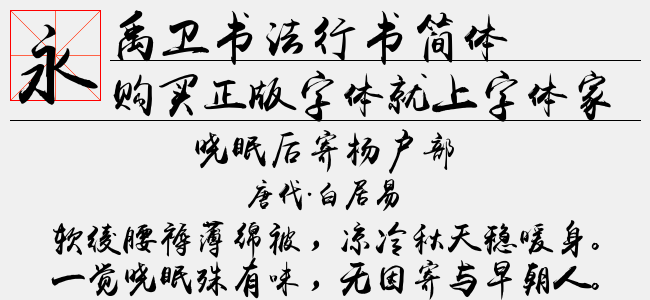 永
禹卫书法行书简体
购买正版字体就上字体家
晓眠后寄杨户部
唐代·白居易
软绫腰褥薄绵被，凉冷秋天稳暖身。
一觉晓眠殊有味，无因寄与早朝人。